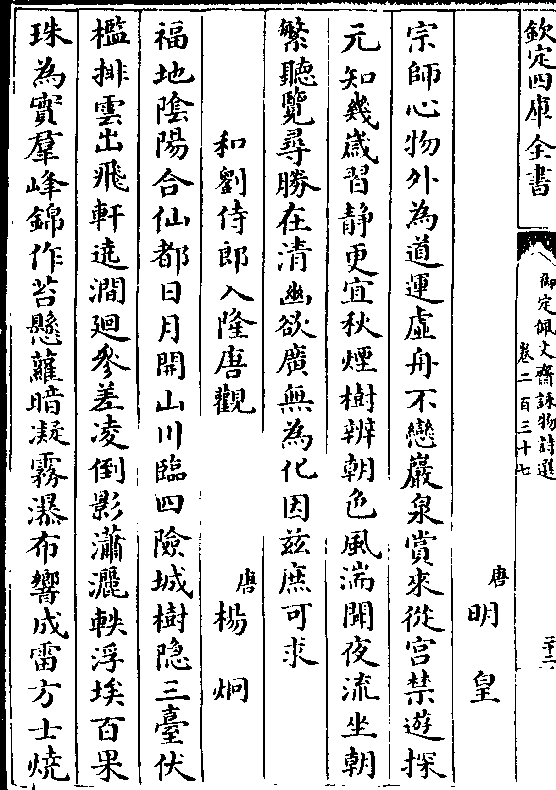 欽定四庫全書
御定佩文齋詠物詩選
卷二百三十七
二十二
唐 明皇
宗師心物外為道運虛舟不戀巖泉賞來從宮禁遊探
元知幾歲習静更宜秋煙樹辨朝色風湍聞夜流坐朝
繁聽覽尋勝在清幽欲廣無為化因兹庶可求
和劉侍郎入隆唐觀
唐 楊炯
福地隂陽合仙都日月開山川臨四險城樹隐三臺伏
檻排雲出飛軒遶澗廻參差凌倒影瀟灑軼浮埃百果
珠為實羣峰錦作苔懸蘿暗凝霧瀑布響成雷方士燒